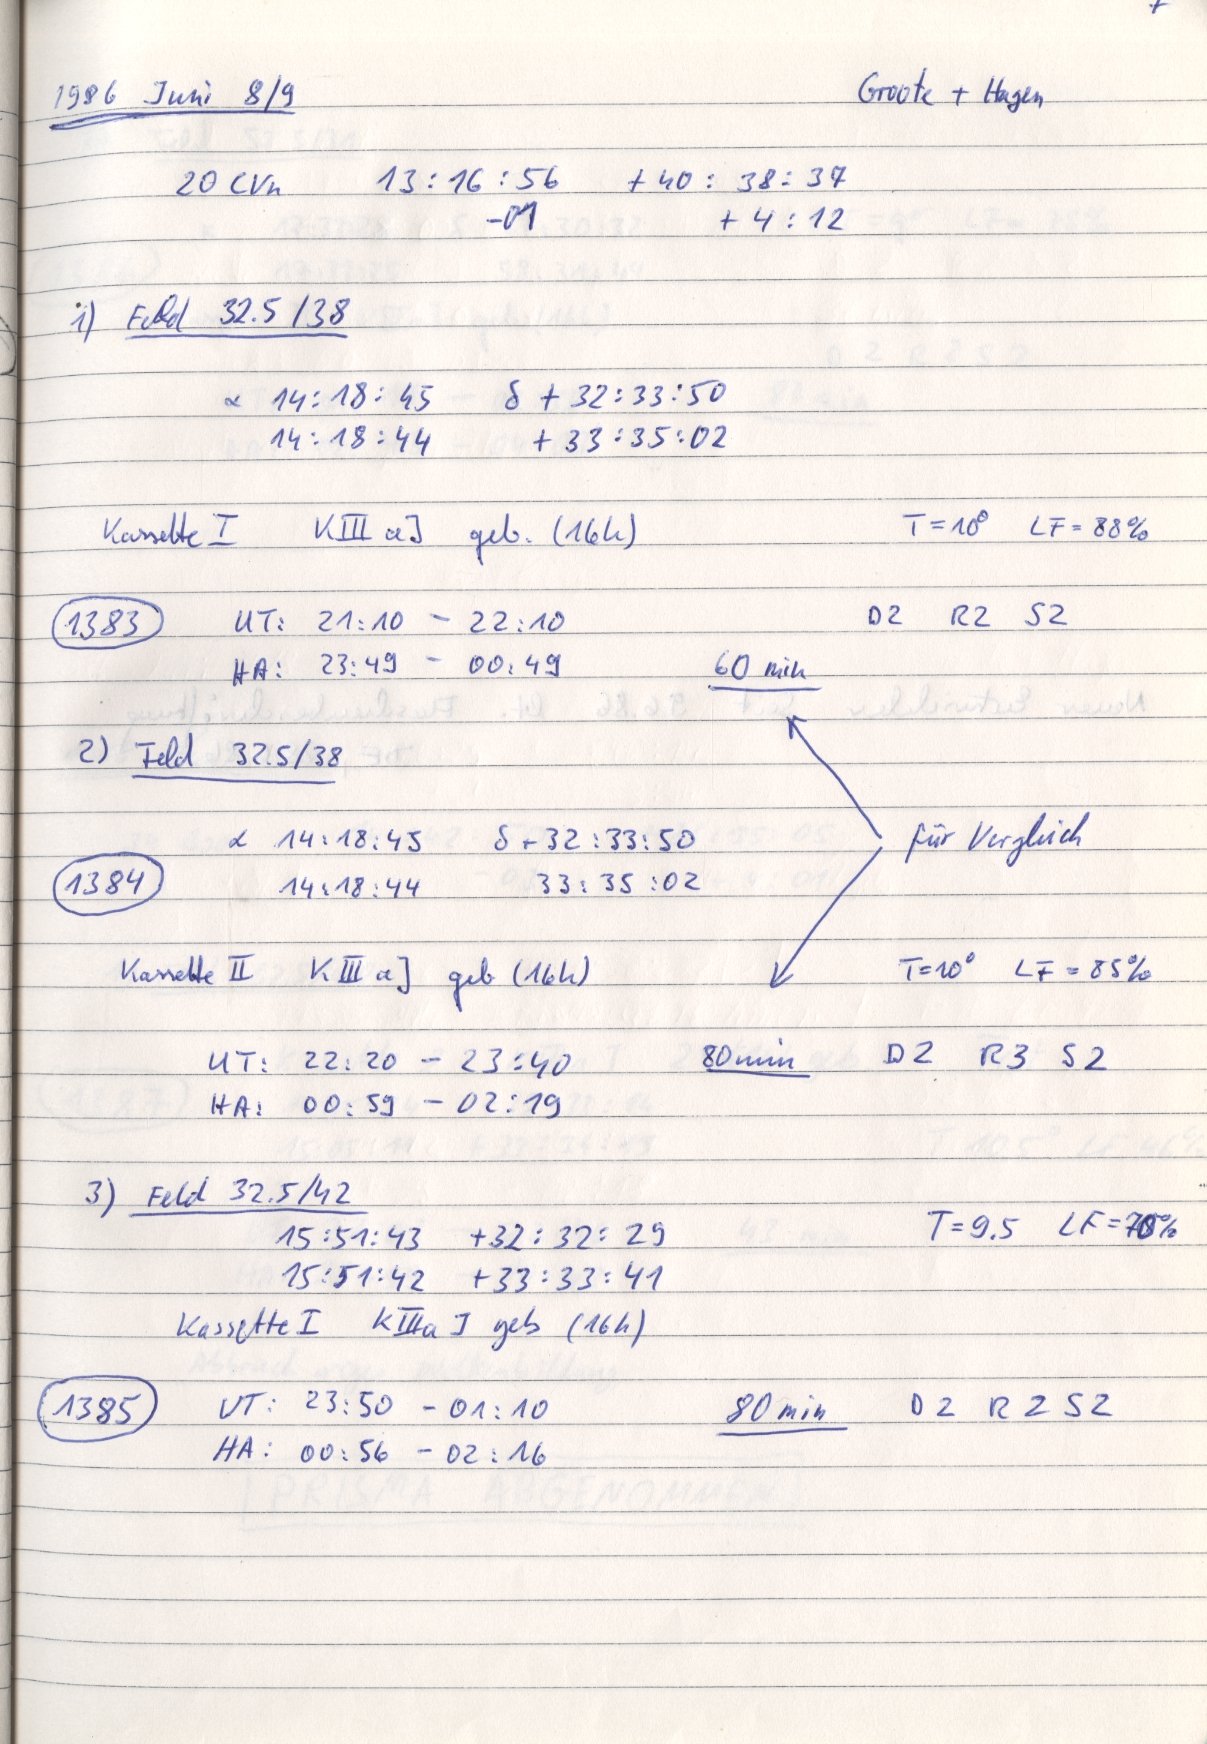 1986 Juni 8/9 Groote + Hagen
20 CVn 13:16:56 +40:38:37
-01 +4:12
1) Feld 32.5/38
α 14:18:45 δ +32:33:50
14:18:44 +33:35:02
Kassette I KIIIaJ geb. (16h) T=10° LF=88%
1383 UT: 21:10 - 22:10 D2 R2 S2
HA: 23:49 - 00:49 60 min
2) Feld 32.5/38
α 14:18:45 δ+32:33:50 für Vergleich
1384 14:18:44 33:35:02
Kassette II KIIIaJ geb (16h) T=10° LF=85%
UT: 22:20 - 23:40 80min D2 R3 S2
HA: 00:59 - 02:19
3) Feld 32.5/42
15:51:43 +32:32:29 T=9.5 LF=
15:51:42 +33:33:41
Kassette I KIIIaJ geb (16h)
1385 UT: 23:50 - 01:10 80min D2 R2 S2
HA: 00:56 - 02:16